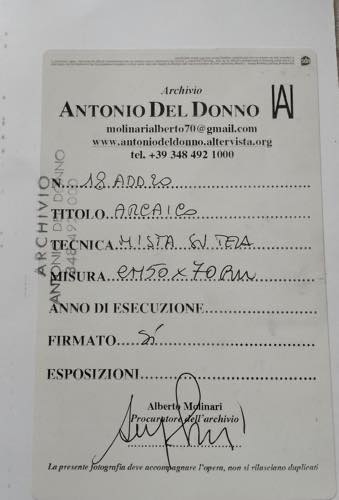 Archivio
ANTONIO DEL DONNO
molinarialberto70@gmail.com
www.antoniodeldonno.altervista.org
tel. +39 348 492 1000
N... 18 ADD20
TITOLO... ARCAICO
TECNICA... MISTA SU TELA
MISURA... CM 50 x 70
ANNO DI ESECUZIONE...
FIRMATO... SÍ
ESPOSIZIONI...
Alberto Molinari
Procuratore dell'archivio
La presente fotografia deve accompagnare l'opera, non si rilasciano duplicati
ARCHIVIO
ANTONIO DEL DONNO
348 492 1000